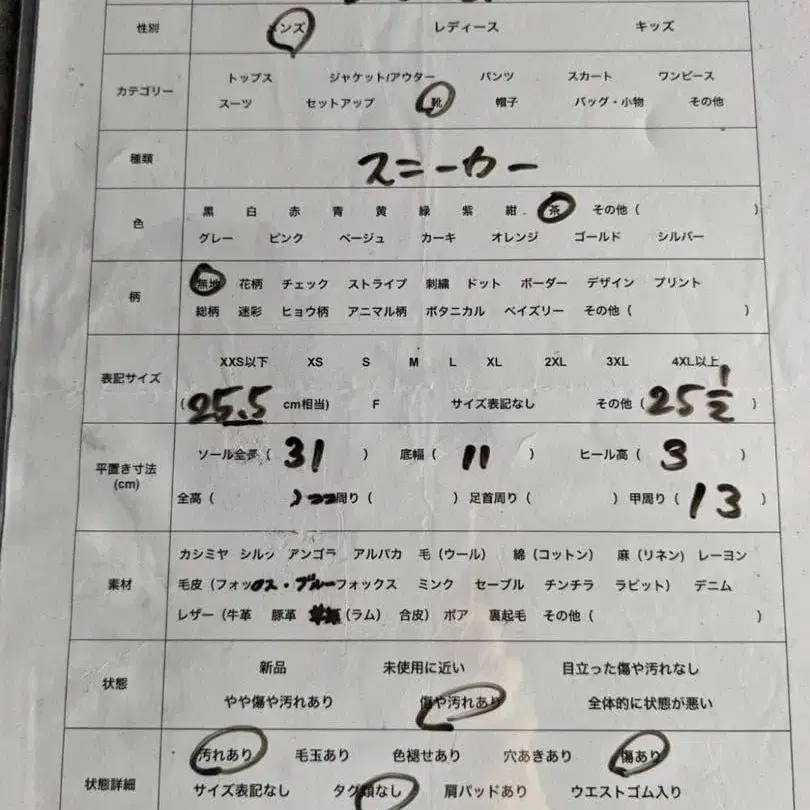 性別 メンズ レディース キッズ
カテゴリー
トップス ジャケット/アウター パンツ スカート ワンピース
スーツ セットアップ 靴 帽子 バッグ・小物 その他
種類 スニーカー
色
黒 白 赤 青 黄 緑 紫 紺 茶 その他 ( )
グレー ピンク ベージュ カーキ オレンジ ゴールド シルバー
柄
無地 花柄 チェック ストライプ 刺繍 ドット ボーダー デザイン プリント
総柄 迷彩 ヒョウ柄 アニマル柄 ボタニカル ペイズリー その他 ( )
表記サイズ
XXS以下 XS S M L XL 2XL 3XL 4XL以上
( 25.5 cm相当) F サイズ表記なし その他 ( 25 1/2 )
平置き寸法
(cm)
ソール全長 ( 31 ) 底幅 ( 11 ) ヒール高 ( 3 )
全高 ( ) 周り ( ) 足首周り ( ) 甲周り ( 13 )
素材
カシミヤ シルク アンゴラ アルパカ 毛 (ウール) 綿 (コットン) 麻 (リネン) レーヨン
毛皮 (フォックス・ブルーフォックス ミンク セーブル チンチラ ラビット) デニム
レザー (牛革 豚革 (ラム) 合皮) ボア 裏起毛 その他 ( )
状態
新品 未使用に近い 目立った傷や汚れなし
やや傷や汚れあり 傷や汚れあり 全体的に状態が悪い
状態詳細
汚れあり 毛玉あり 色褪せあり 穴あきあり 傷あり
サイズ表記なし タグ類なし 肩パッドあり ウエストゴム入り